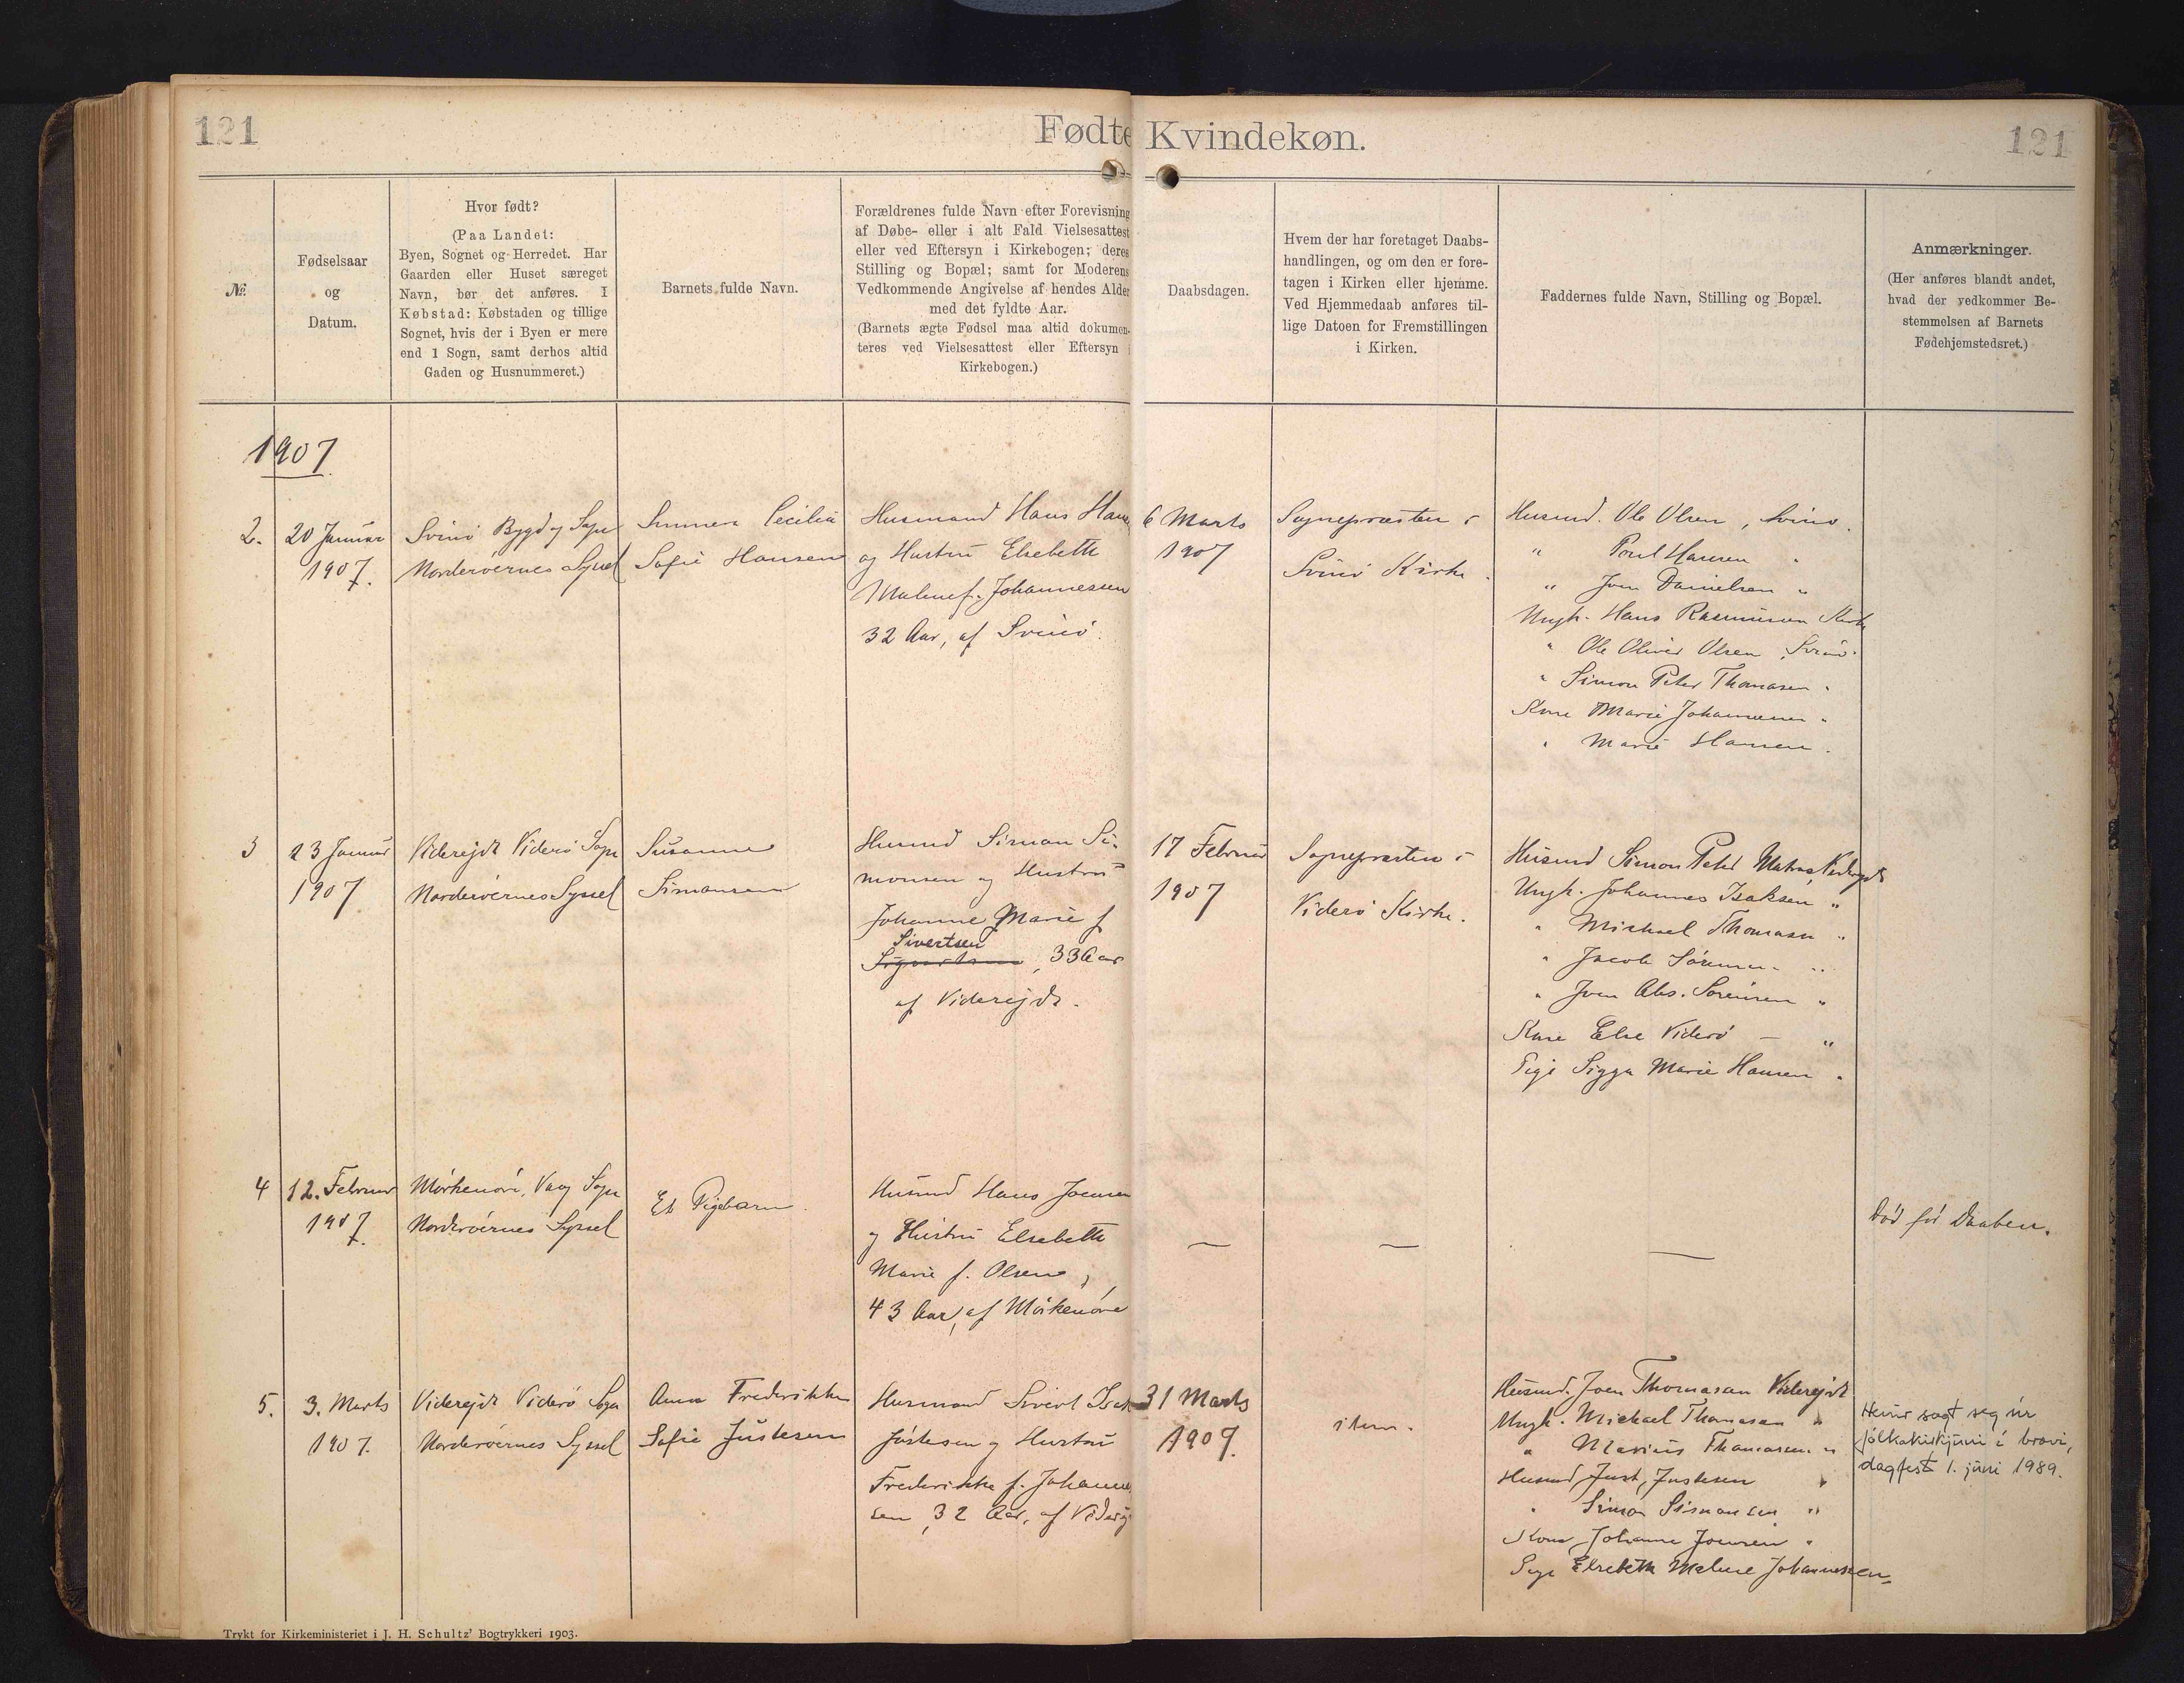 121
Fødte Kvindekøn.
121
№.
Fødselsaar
og
Datum.
Hvor født?
(Paa Landet:
Byen, Sognet og Herredet. Har
Gaarden eller Huset særeget
Navn, bør det anføres. I
Købstad: Købstaden og tillige
Sognet, hvis der i Byen er mere
end 1 Sogn, samt derhos altid
Gaden og Husnummeret.)
Barnets fulde Navn.
Forældrenes fulde Navn efter Forevisning
af Døbe- eller i alt Fald Vielsesattest
eller ved Eftersyn i Kirkebogen; deres
Stilling og Bopæl; samt for Moderens
Vedkommende Angivelse af hendes Alder
med det fyldte Aar.
(Barnets ægte Fødsel maa altid dokumen-
teres ved Vielsesattest eller Eftersyn i
Kirkebogen.)
Daabsdagen.
Hvem der har foretaget Daabs-
handlingen, og om den er fore-
tagen i Kirken eller hjemme.
Ved Hjemmedaab anføres til-
lige Datoen for Fremstillingen
i Kirken.
Faddernes fulde Navn, Stilling og Bopæl.
Anmærkninger.
(Her anføres blandt andet,
hvad der vedkommer Be-
stemmelsen af Barnets
Fødehjemstedsret.)
1907
2.
20 Januar
1907.
Svinø Bygd og Sogn
Norderøernes Syssel
Sunneva Cecilia
Sofie Hansen
Husmand Hans Hans
og Hustru Elsebeth
Malene f. Johannesen
32 Aar, af Svinø.
6 Marts
1907
Sognepræsten i
Svinø Kirke.
Husmd. Ole Olsen, Svinø.
" Poul Hansen "
" Joen Danielsen "
Ungk. Hans Rasmussen
" Ole Oliver Olsen, Svinø.
" Simon Peter Thomasen "
Kone Marie Johannesen "
" Marie Hansen "
3
23 Januar
1907
Viderejde Viderø Sogn
Norderøernes Syssel
Susanne
Simonsen
Husmd Simon Si-
monsen og Hustru
Johanne Marie f
Sivertsen
, 33 Aar
af Viderejde.
17 Februar
1907
Sognepræsten i
Viderø Kirke.
Husmd Simon Peter Matras Viderejde
Ungk. Johannes Isaksen "
" Michael Thomasen "
" Jacob Sørensen "
" Joen Abs. Sørensen "
Kone Else Viderø — "
Pige Sigga Marie Hansen "
4
12. Februar
1907.
Mørkenøre, Vaag Sogn
Norderøernes Syssel
Et Pigebarn.
Husmd Hans Joensen
og Hustru Elsebeth
Marie f. Olsen,
43 Aar, af Mørkenøre
—
—
—
Død før Daaben.
5.
3. Marts
1907.
Viderejde Viderø Sogn
Norderøernes Syssel
Anna Frederikke
Sofie Justesen
Husmand Sivert Isak
Justesen og Hustru
Frederikke f. Johanne
sen, 32 Aar, af Viderej
31 Marts
1907.
item.
Husmd. Joen Thomasen Viderejde
Ungk. Michael Thomasen "
" Marius Thomasen "
Husmd Just, Justesen "
" Simon Simonsen "
Kone Johanne Joensen "
Pige Elsebeth Malene Johannessen,
Hevur sagt seg úr
fólkakirkjuni í brævi,
dagfest 1. juni 1989.
Trykt for Kirkeministeriet i J. H. Schultz' Bogtrykkeri 1903.